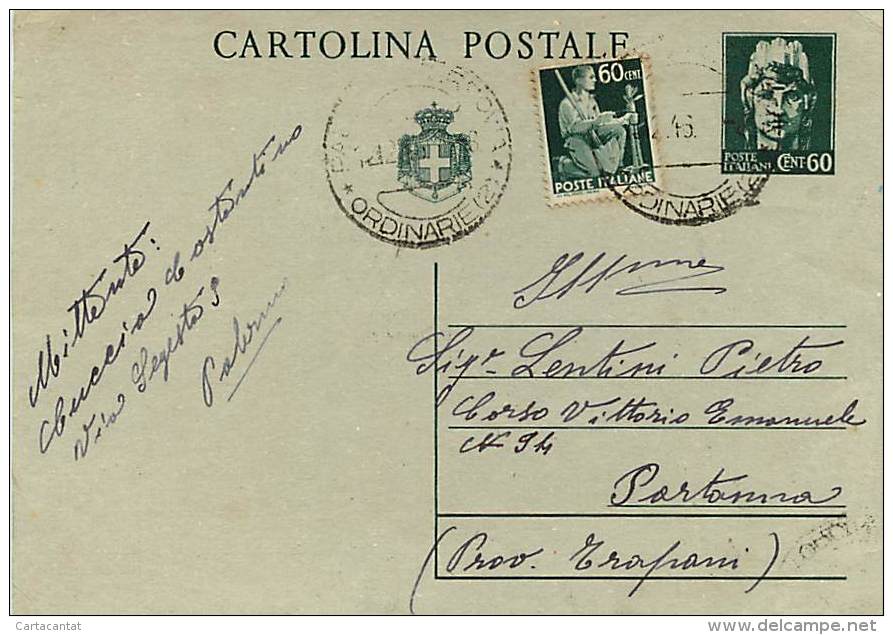 CARTOLINA POSTALE
60 CENT.
POSTE ITALIANE
POSTE
ITALIANE CENT 60
ORDINARIE (2)
46.
ORDINARIE (2)
Mittente:
Cuccia Costantino
Via Segesta 9
Palermo
Sigr. Lentini Pietro
Corso Vittorio Emanuele
N 94
Partanna
(Prov. Trapani)
Cartacantat
delcampe.net